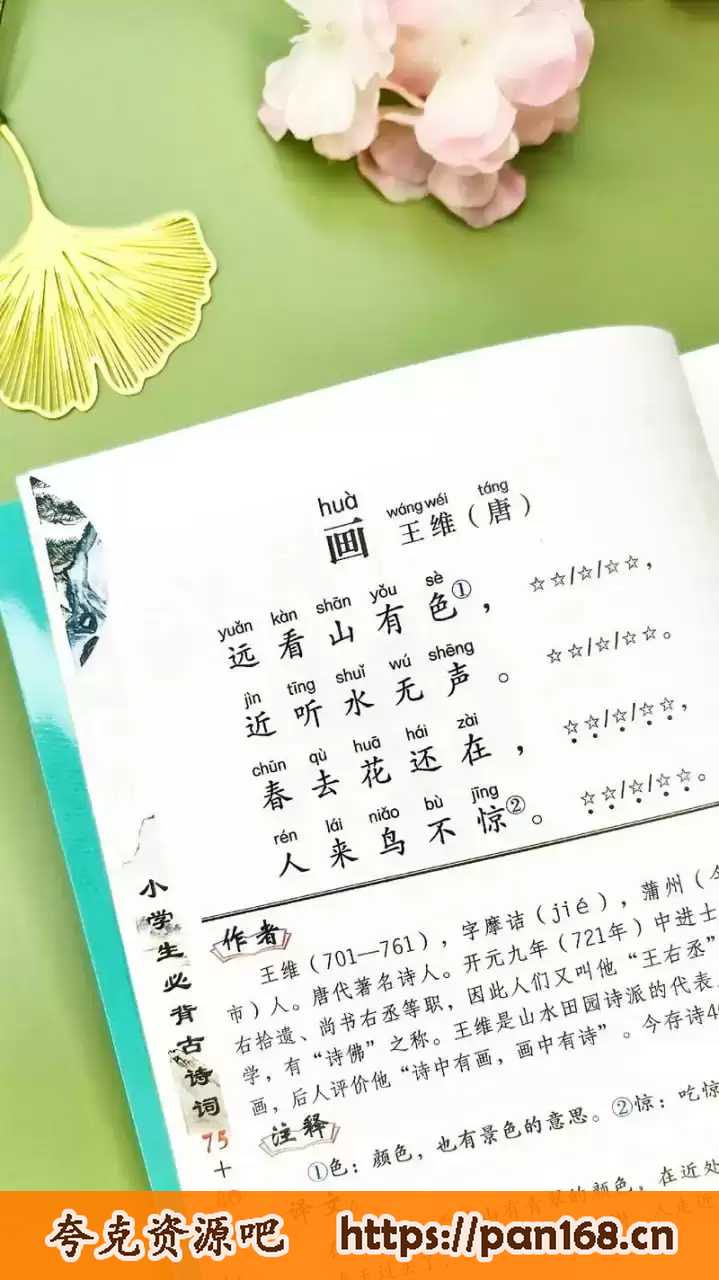 huà
画
wáng wéi táng
王维（唐）
yuǎn kàn shān yǒu sè
远看山有色①，☆☆/☆/☆☆，
jìn tīng shuǐ wú shēng
近听水无声。☆☆/☆/☆☆。
chūn qù huā hái zài
春去花还在，☆☆/☆/☆☆，
rén lái niǎo bù jīng
人来鸟不惊②。☆☆/☆/☆☆。
作者
王维（701—761），字摩诘（jié），蒲州（今
市）人。唐代著名诗人。开元九年（721年）中进士
右拾遗、尚书右丞等职，因此人们又叫他“王右丞”
学，有“诗佛”之称。王维是山水田园诗派的代表
画，后人评价他“诗中有画，画中有诗”。今存诗4
注释
①色：颜色，也有景色的意思。②惊：吃惊
译文
山有青翠的颜色，在近处
小学生必背古诗词
75
十
夸克资源吧 https://pan168.cn